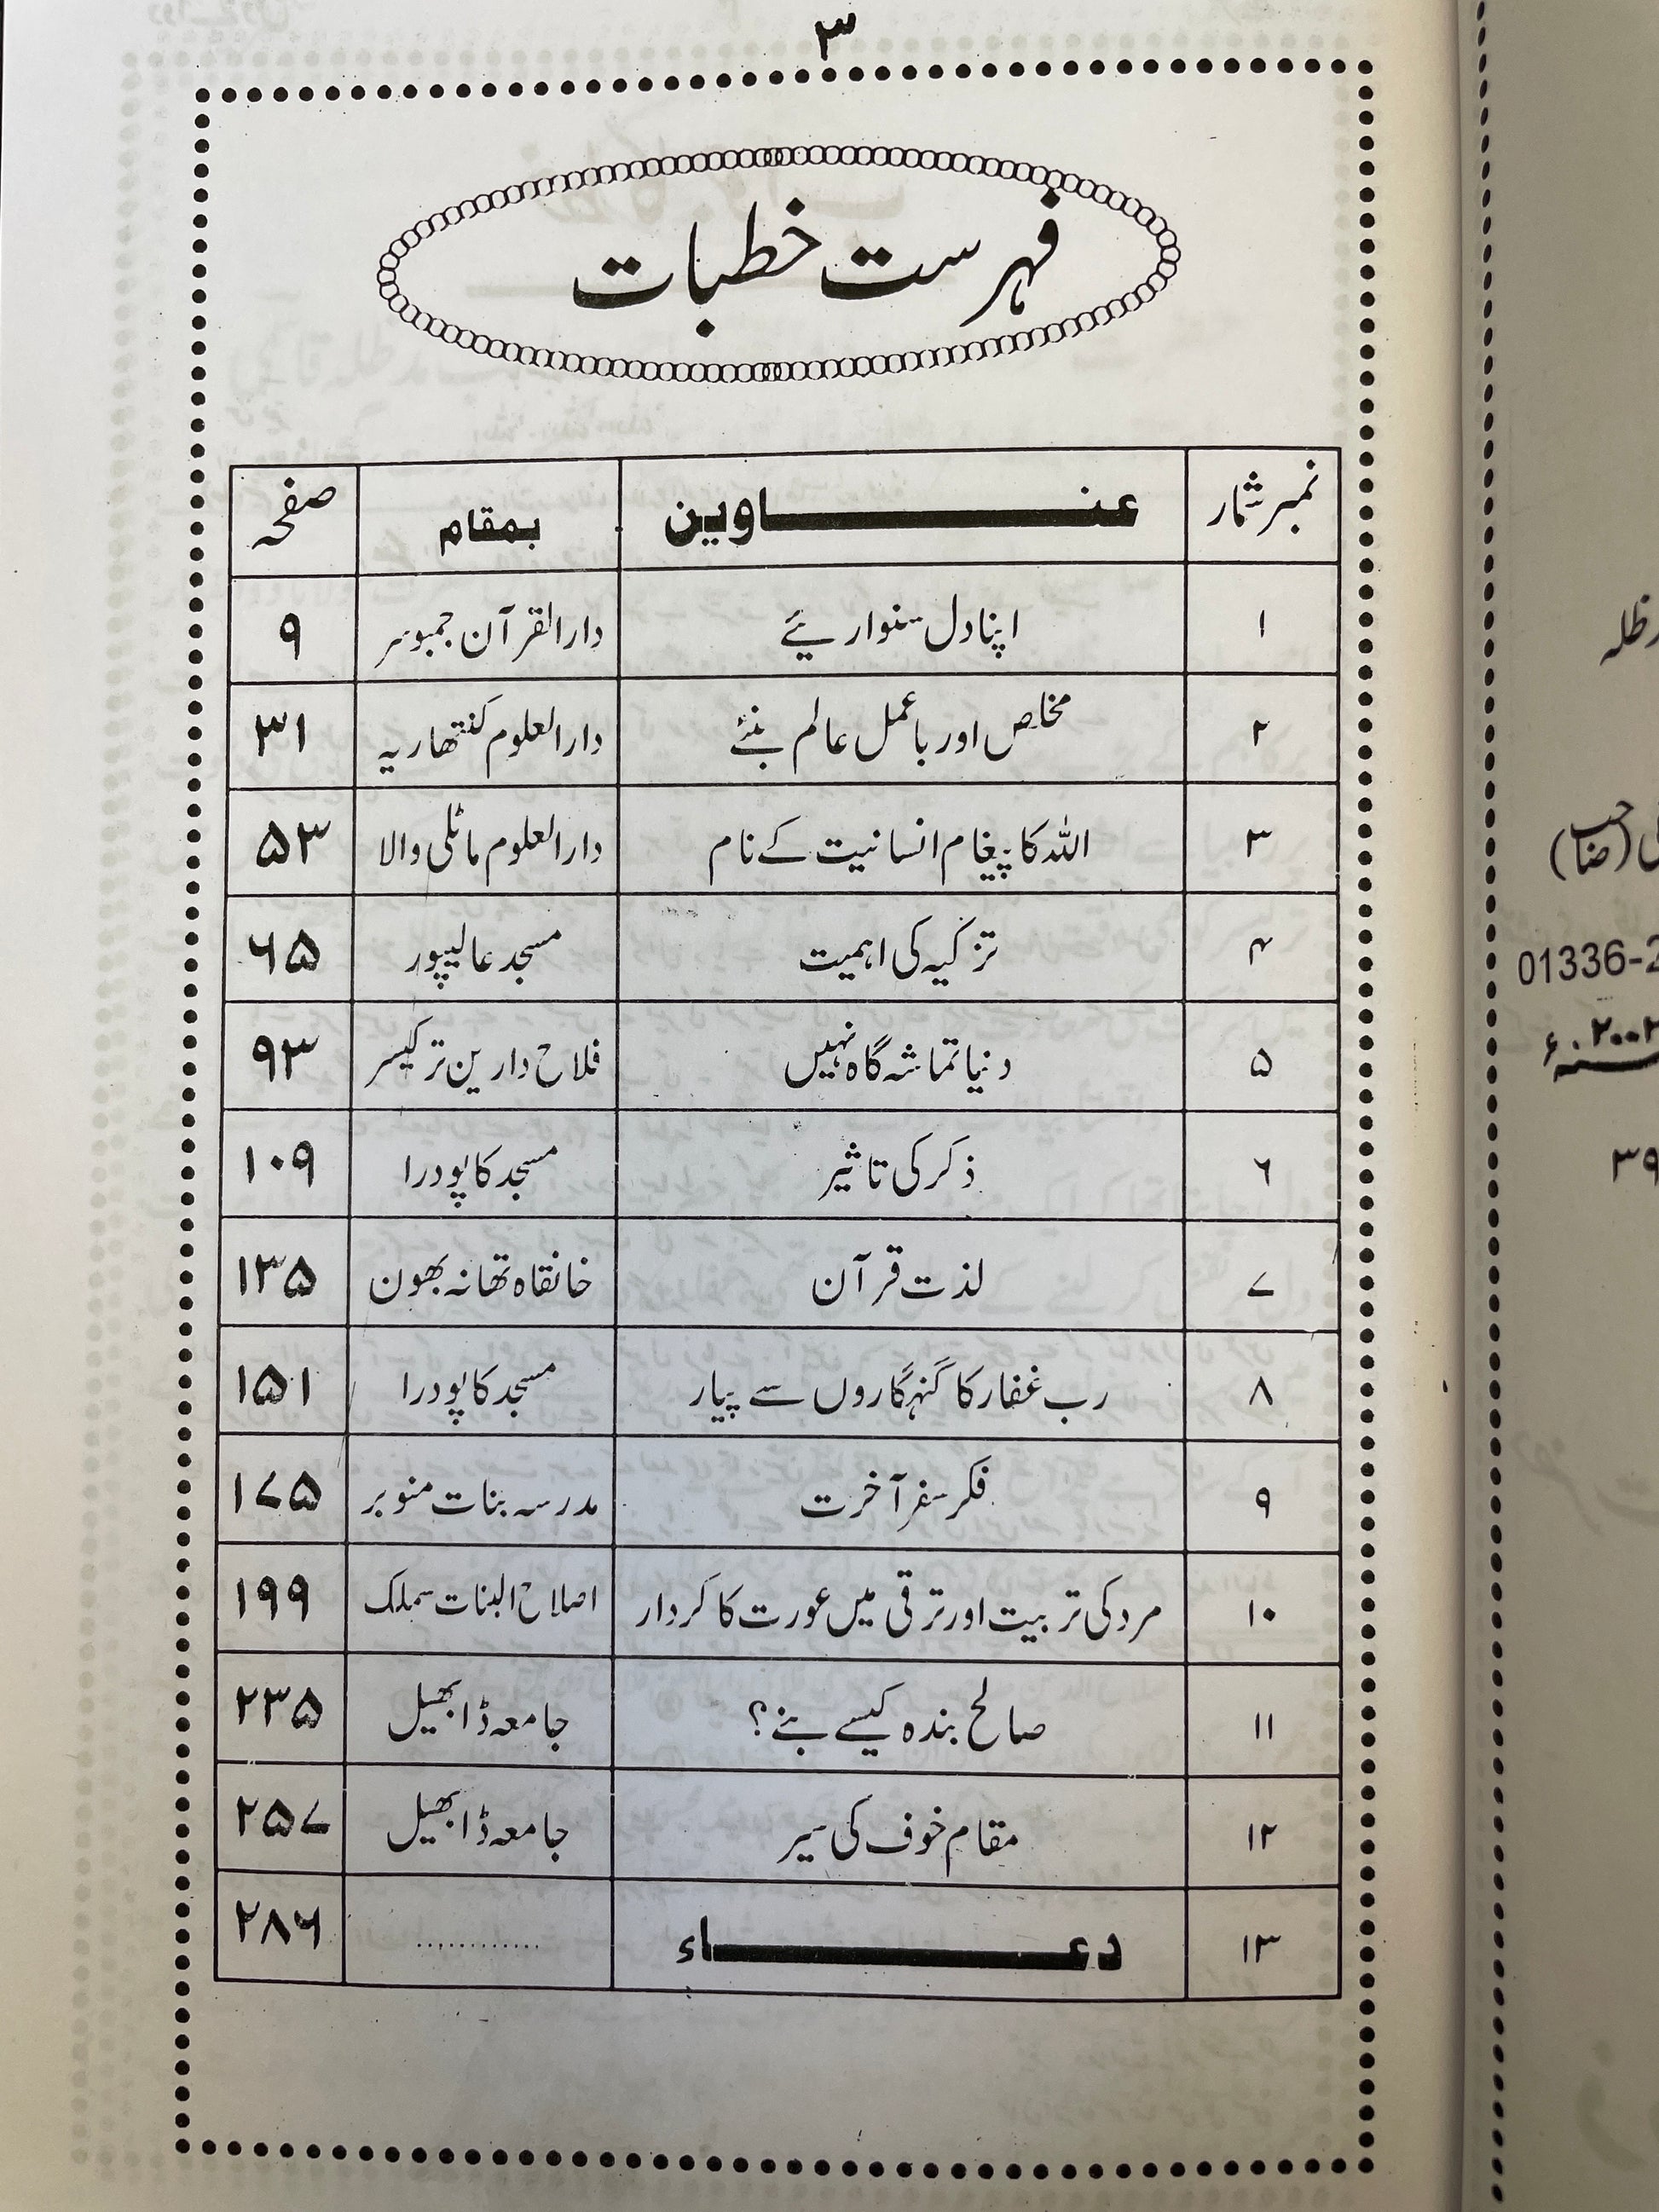 ۳
فہرست خطبات
نمبر شمار عناوین بمقام صفحہ
۱ اپنا دل سنواریئے دارالقرآن جمبوسر ۹
۲ مخلص اور باعمل عالم بنئے دارالعلوم کنتھاریہ ۳۱
۳ اللہ کا پیغام انسانیت کے نام دارالعلوم ماٹلی والا ۵۳
۴ تزکیہ کی اہمیت مسجد عالیپور ۶۵
۵ دنیا تماشہ گاہ نہیں فلاح دارین ترکیسر ۹۳
۶ ذکر کی تاثیر مسجد کاپودرا ۱۰۹
۷ لذت قرآن خانقاہ تھانہ بھون ۱۳۵
۸ رب غفار کا گنہگاروں سے پیار مسجد کاپودرا ۱۵۱
۹ فکر سفر آخرت مدرسہ بنات منوبر ۱۷۵
۱۰ مرد کی تربیت اور ترقی میں عورت کا کردار اصلاح البنات سملک ۱۹۹
۱۱ صالح بندہ کیسے بنے؟ جامعہ ڈابھیل ۲۳۵
۱۲ مقام خوف کی سیر جامعہ ڈابھیل ۲۵۷
۱۳ دعاء ............ ۲۸۶
01336-2